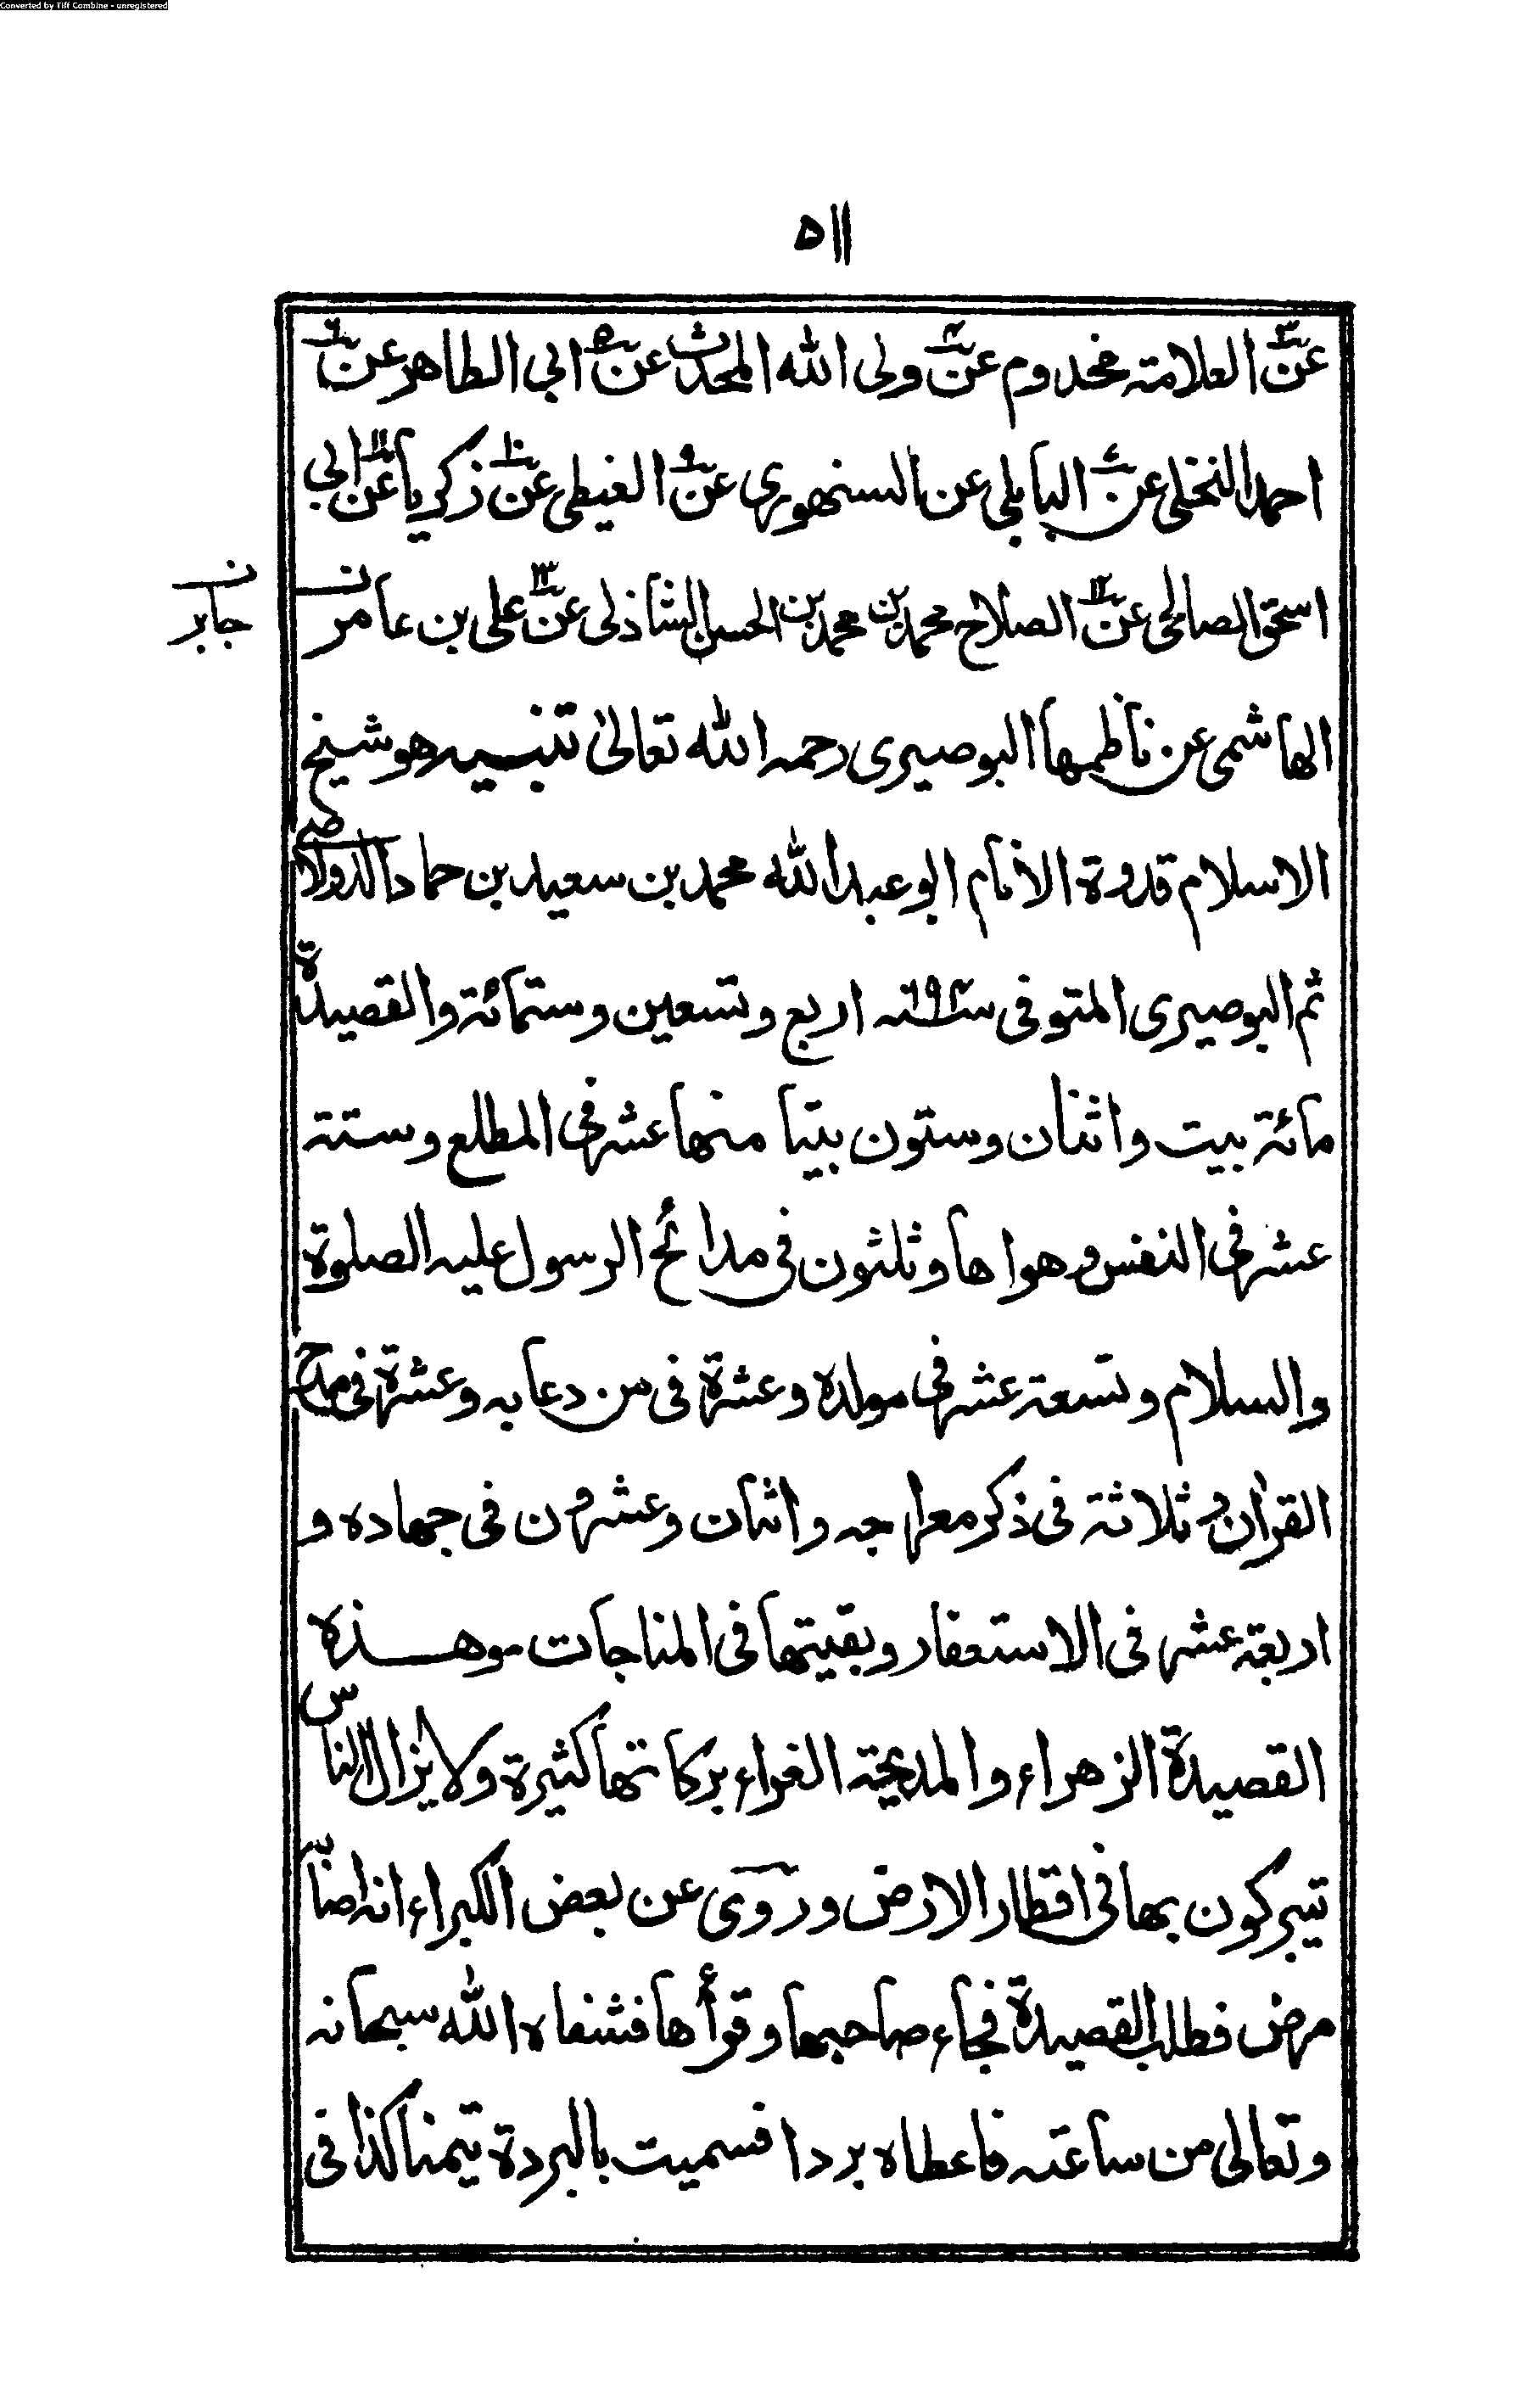 Converted by Tiff Combine - unregistered
٥١١
عن٣ العلامة مخدوم عن٤ ولى الله المحدث عن٥ ابي الطاهر عن٦
احمد النخلى عن٧ البابلي عن السنهورى عن٩ الغيطى عن١٠ زكريا عن١١ ابي
اسحق الصالحى عن١٢ الصلاح محمد بن محمد بن الحسن الشاذلى عن١٣ على بن عامر ن
ن جابر
الهاشمى عن ناظمها البوصيرى رحمه الله تعالىٰ تنبيه هو شيخ
الاسلام قدوة الانام ابو عبد الله محمد بن سعيد بن حماد الدولاصى
ثم البوصيرى المتوفى سنة ٦٩٤ اربع وتسعين وستمائة والقصيدة
مائة بيت واثنان وستون بيتا منها عشر فى المطلع وستة
عشر فى النفس وهواها وثلثون فى مدائح الرسول عليه الصلوة
والسلام وتسعة عشر فى مولده وعشرة فى من دعا به وعشرة فى مدح
القرآن وثلاثة فى ذكر معراجه واثنان وعشرون فى جهاده و
اربعة عشر فى الاستغفار وبقيتها فى المناجات وهذه
القصيدة الزهراء والمديحة الغراء بركاتها كثيرة ولا يزال الناس
يتبركون بها فى اقطار الارض وروى عن بعض الكبراء انه اصابه
مرض فطلب القصيدة فجاء صاحبها وقرأها فشفاه الله سبحانه
وتعالى من ساعته فاعطاه بردا فسميت بالبردة تيمنا كذا فى